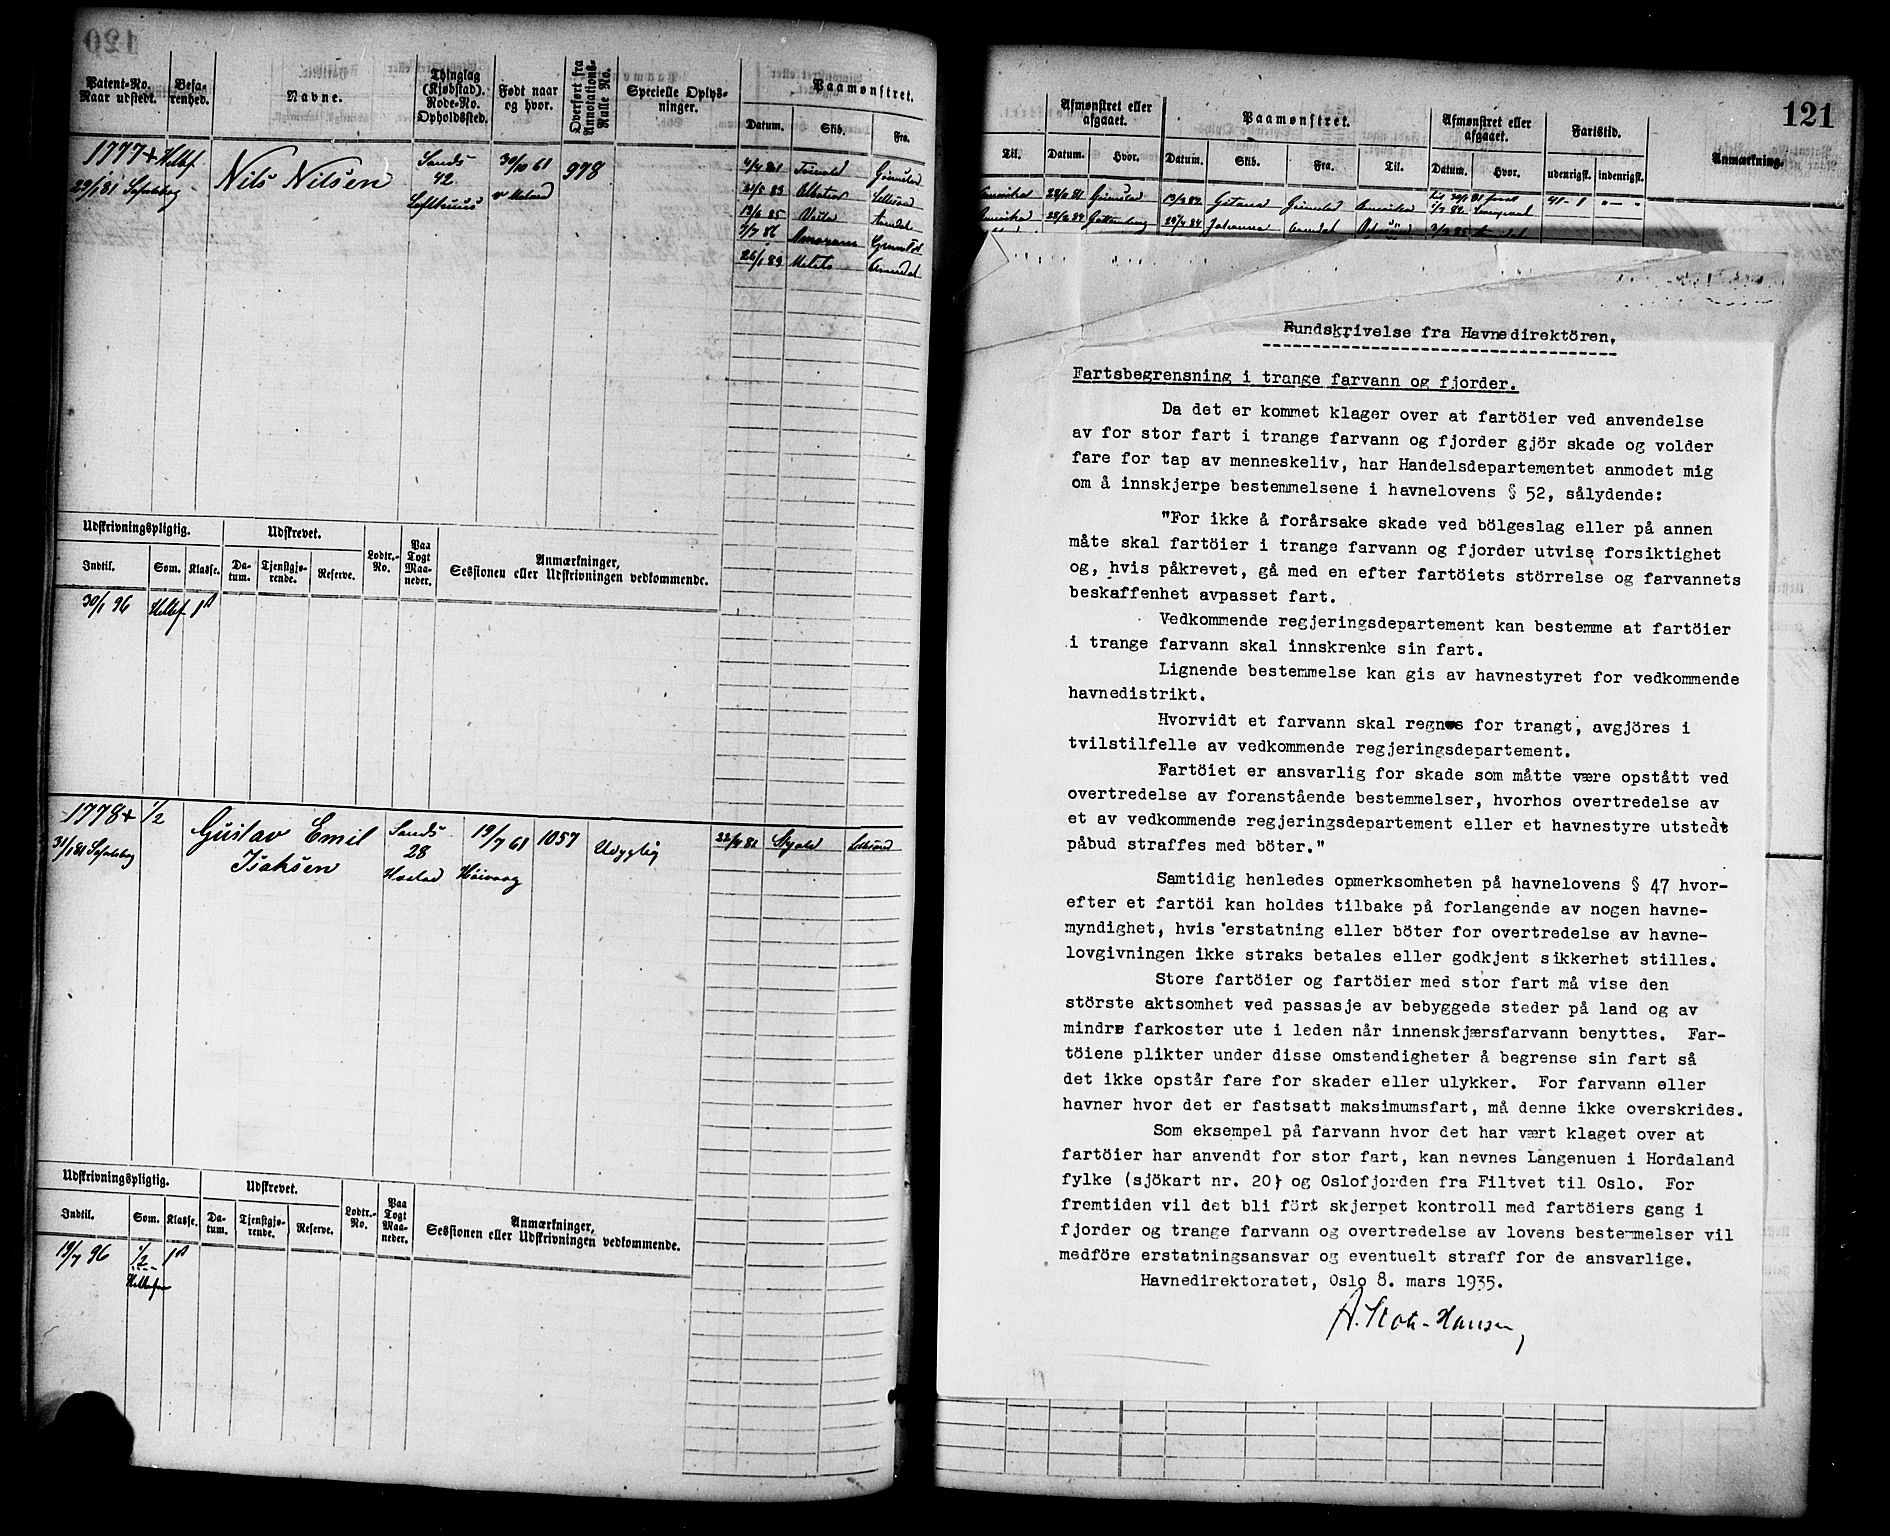 Patent-No.
Naar udstedt.
Befa-
renhed.
Navne.
Thinglag
(Kjøbstad).
Rode-No.
Opholdssted.
Født naar
og hvor.
Overført fra
Annotations-
Rulle No.
Specielle Oplys-
ninger.
Paamønstret.
Datum. Skib. Fra.
1777 +
29/1 81
Nils Nilsen
Sands
42
Lofthuus
30/10 61
998
4/4 81
21/5 83
13/6 85
Arendal
26/1 89
Udskrivningspligtig.
Udskrevet.
Lodtr.-
No.
Paa
Togt
Maa-
neder.
Anmærkninger,
Sessionen eller Udskrivningen vedkommende.
Indtil. Som. Klasse. Da-
tum. Tjenstgjø-
rende. Reserve.
30/1 96
1778 + 1/2
31/1 81
Gustav Emil
Isaksen
Sands
28
19/7 61
Høivaag
1057
Udygtig
Udskrivningspligtig.
Udskrevet.
Lodtr.-
No.
Paa
Togt
Maa-
neder.
Anmærkninger,
Sessionen eller Udskrivningen vedkommende.
Indtil. Som. Klasse. Da-
tum. Tjenstgjø-
rende. Reserve.
19/7 96 1/2
121
Afmønstret eller
afgaaet.
Paamønstret.
Afmønstret eller
afgaaet.
Fartstid.
Anmærkning.
Til. Datum. Hvor. Datum. Skib. Fra. Til. Datum. Hvor. udenrigsk. indenrigsk.
Amerika Grimstad Gitana Grimstad Amerika
Johanna Arendal
Rundskrivelse fra Havnedirektören,
Fartsbegrensning i trange farvann og fjorder.
Da det er kommet klager over at fartöier ved anvendelse
av for stor fart i trange farvann og fjorder gjör skade og volder
fare for tap av menneskeliv, har Handelsdepartementet anmodet mig
om å innskjerpe bestemmelsene i havnelovens § 52, sålydende:
"For ikke å forårsake skade ved bölgeslag eller på annen
måte skal fartöier i trange farvann og fjorder utvise forsiktighet
og, hvis påkrevet, gå med en efter fartöiets störrelse og farvannets
beskaffenhet avpasset fart.
Vedkommende regjeringsdepartement kan bestemme at fartöier
i trange farvann skal innskrenke sin fart.
Lignende bestemmelse kan gis av havnestyret for vedkommende
havnedistrikt.
Hvorvidt et farvann skal regnes for trangt, avgjöres i
tvilstilfelle av vedkommende regjeringsdepartement.
Fartöiet er ansvarlig for skade som måtte være opstått ved
overtredelse av foranstående bestemmelser, hvorhos overtredelse av
et av vedkommende regjeringsdepartement eller et havnestyre utstedt
påbud straffes med böter."
Samtidig henledes opmerksomheten på havnelovens § 47 hvor-
efter et fartöi kan holdes tilbake på forlangende av nogen havne-
myndighet, hvis erstatning eller böter for overtredelse av havne-
lovgivningen ikke straks betales eller godkjent sikkerhet stilles.
Store fartöier og fartöier med stor fart må vise den
störste aktsomhet ved passasje av bebyggede steder på land og av
mindre farkoster ute i leden når innenskjærsfarvann benyttes. Far-
töiene plikter under disse omstendigheter å begrense sin fart så
det ikke opstår fare for skader eller ulykker. For farvann eller
havner hvor det er fastsatt maksimumsfart, må denne ikke overskrides.
Som eksempel på farvann hvor det har vært klaget over at
fartöier har anvendt for stor fart, kan nevnes Langenuen i Hordaland
fylke (sjökart nr. 20) og Oslofjorden fra Filtvet til Oslo. For
fremtiden vil det bli fört skjerpet kontroll med fartöiers gang i
fjorder og trange farvann og overtredelse av lovens bestemmelser vil
medföre erstatningsansvar og eventuelt straff for de ansvarlige.
Havnedirektoratet, Oslo 8. mars 1935.